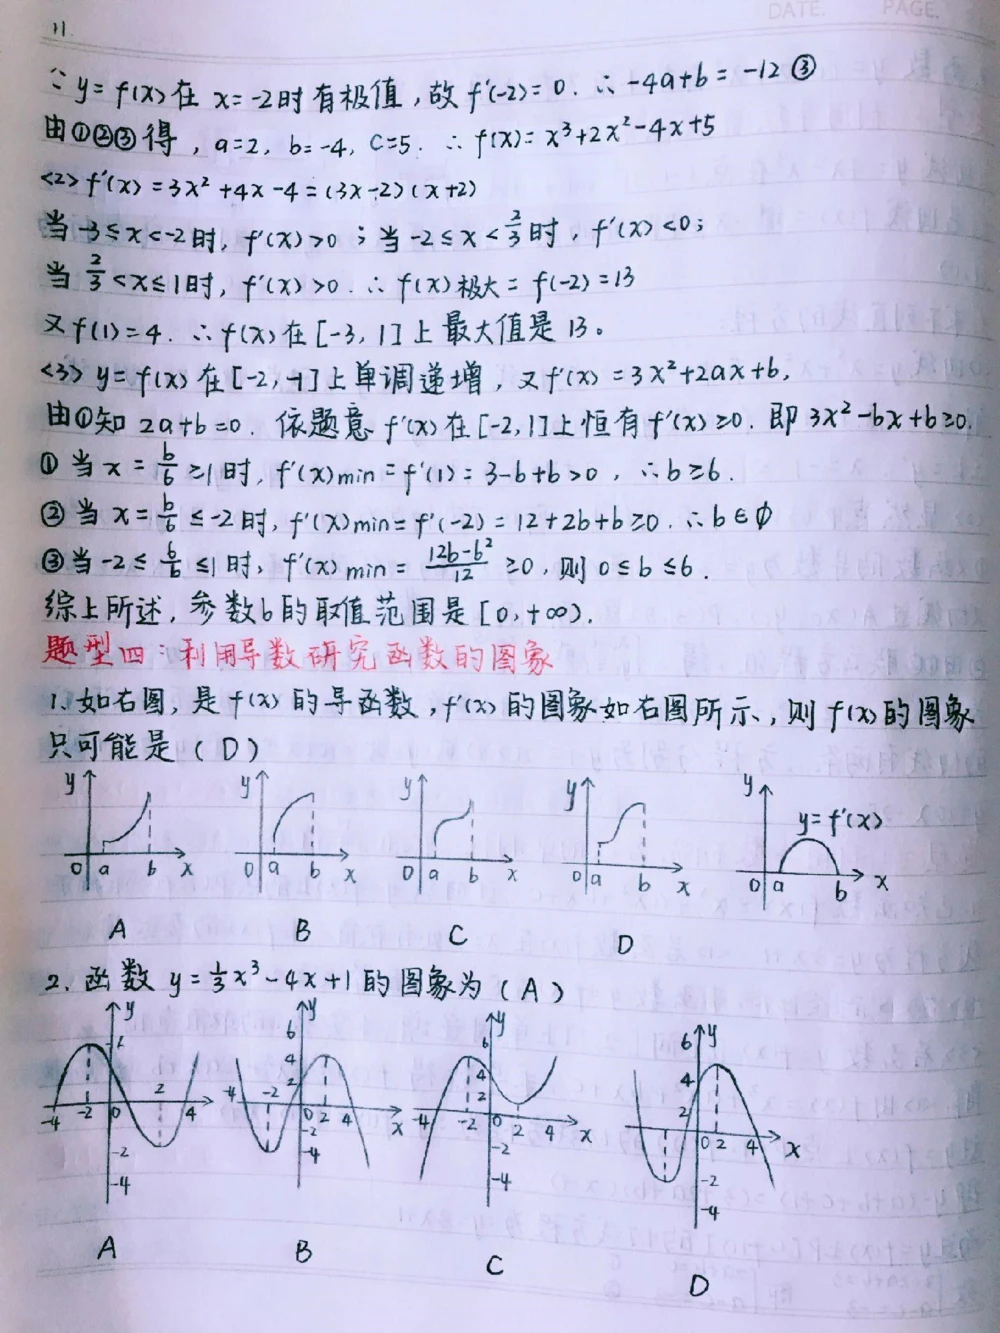 DATE. PAGE.
11.
∵ y=f(x)在 x=-2时有极值,故f'(-2)=0. ∴-4a+b=-12 ③
由①②③得, a=2, b=-4, c=5. ∴ f(x)=x³+2x²-4x+5
<2> f'(x)=3x²+4x-4=(3x-2)(x+2)
当-3≤x<-2时, f'(x)>0; 当-2≤x<2/3时, f'(x)<0;
当2/3<x≤1时, f'(x)>0. ∴ f(x)极大=f(-2)=13
又f(1)=4. ∴ f(x)在[-3,1]上最大值是13。
<3> y=f(x)在[-2,1]上单调递增, 又f'(x)=3x²+2ax+b,
由①知 2a+b=0. 依题意f'(x)在[-2,1]上恒有f'(x)≥0. 即 3x²-bx+b≥0.
①当x=b/6≥1时, f'(x)min=f'(1)=3-b+b>0, ∴b≥6.
②当x=b/6≤-2时, f'(x)min=f'(-2)=12+2b+b≥0. ∴b∈∅
③当-2≤b/6≤1时, f'(x)min=(12b-b²)/12≥0, 则0≤b≤6.
综上所述, 参数b的取值范围是[0,+∞).
题型四:利用导数研究函数的图象
1.如右图, 是f(x)的导函数, f'(x)的图象如右图所示, 则f(x)的图象
只可能是(D)
y 0 a b x
y 0 a b x
y 0 a b x
y 0 a b x
y y=f'(x) 0 a b x
A B C D
2. 函数 y=1/3x³-4x+1的图象为(A)
y 6 -4 -2 0 2 4 -2 -4
y 6 4 2 -4 -2 0 2 4 -2 -4 x
y 6 4 2 -4 -2 0 2 4 -2 -4 x
y 6 4 2 0 2 4 -2 -4 x
A B C D